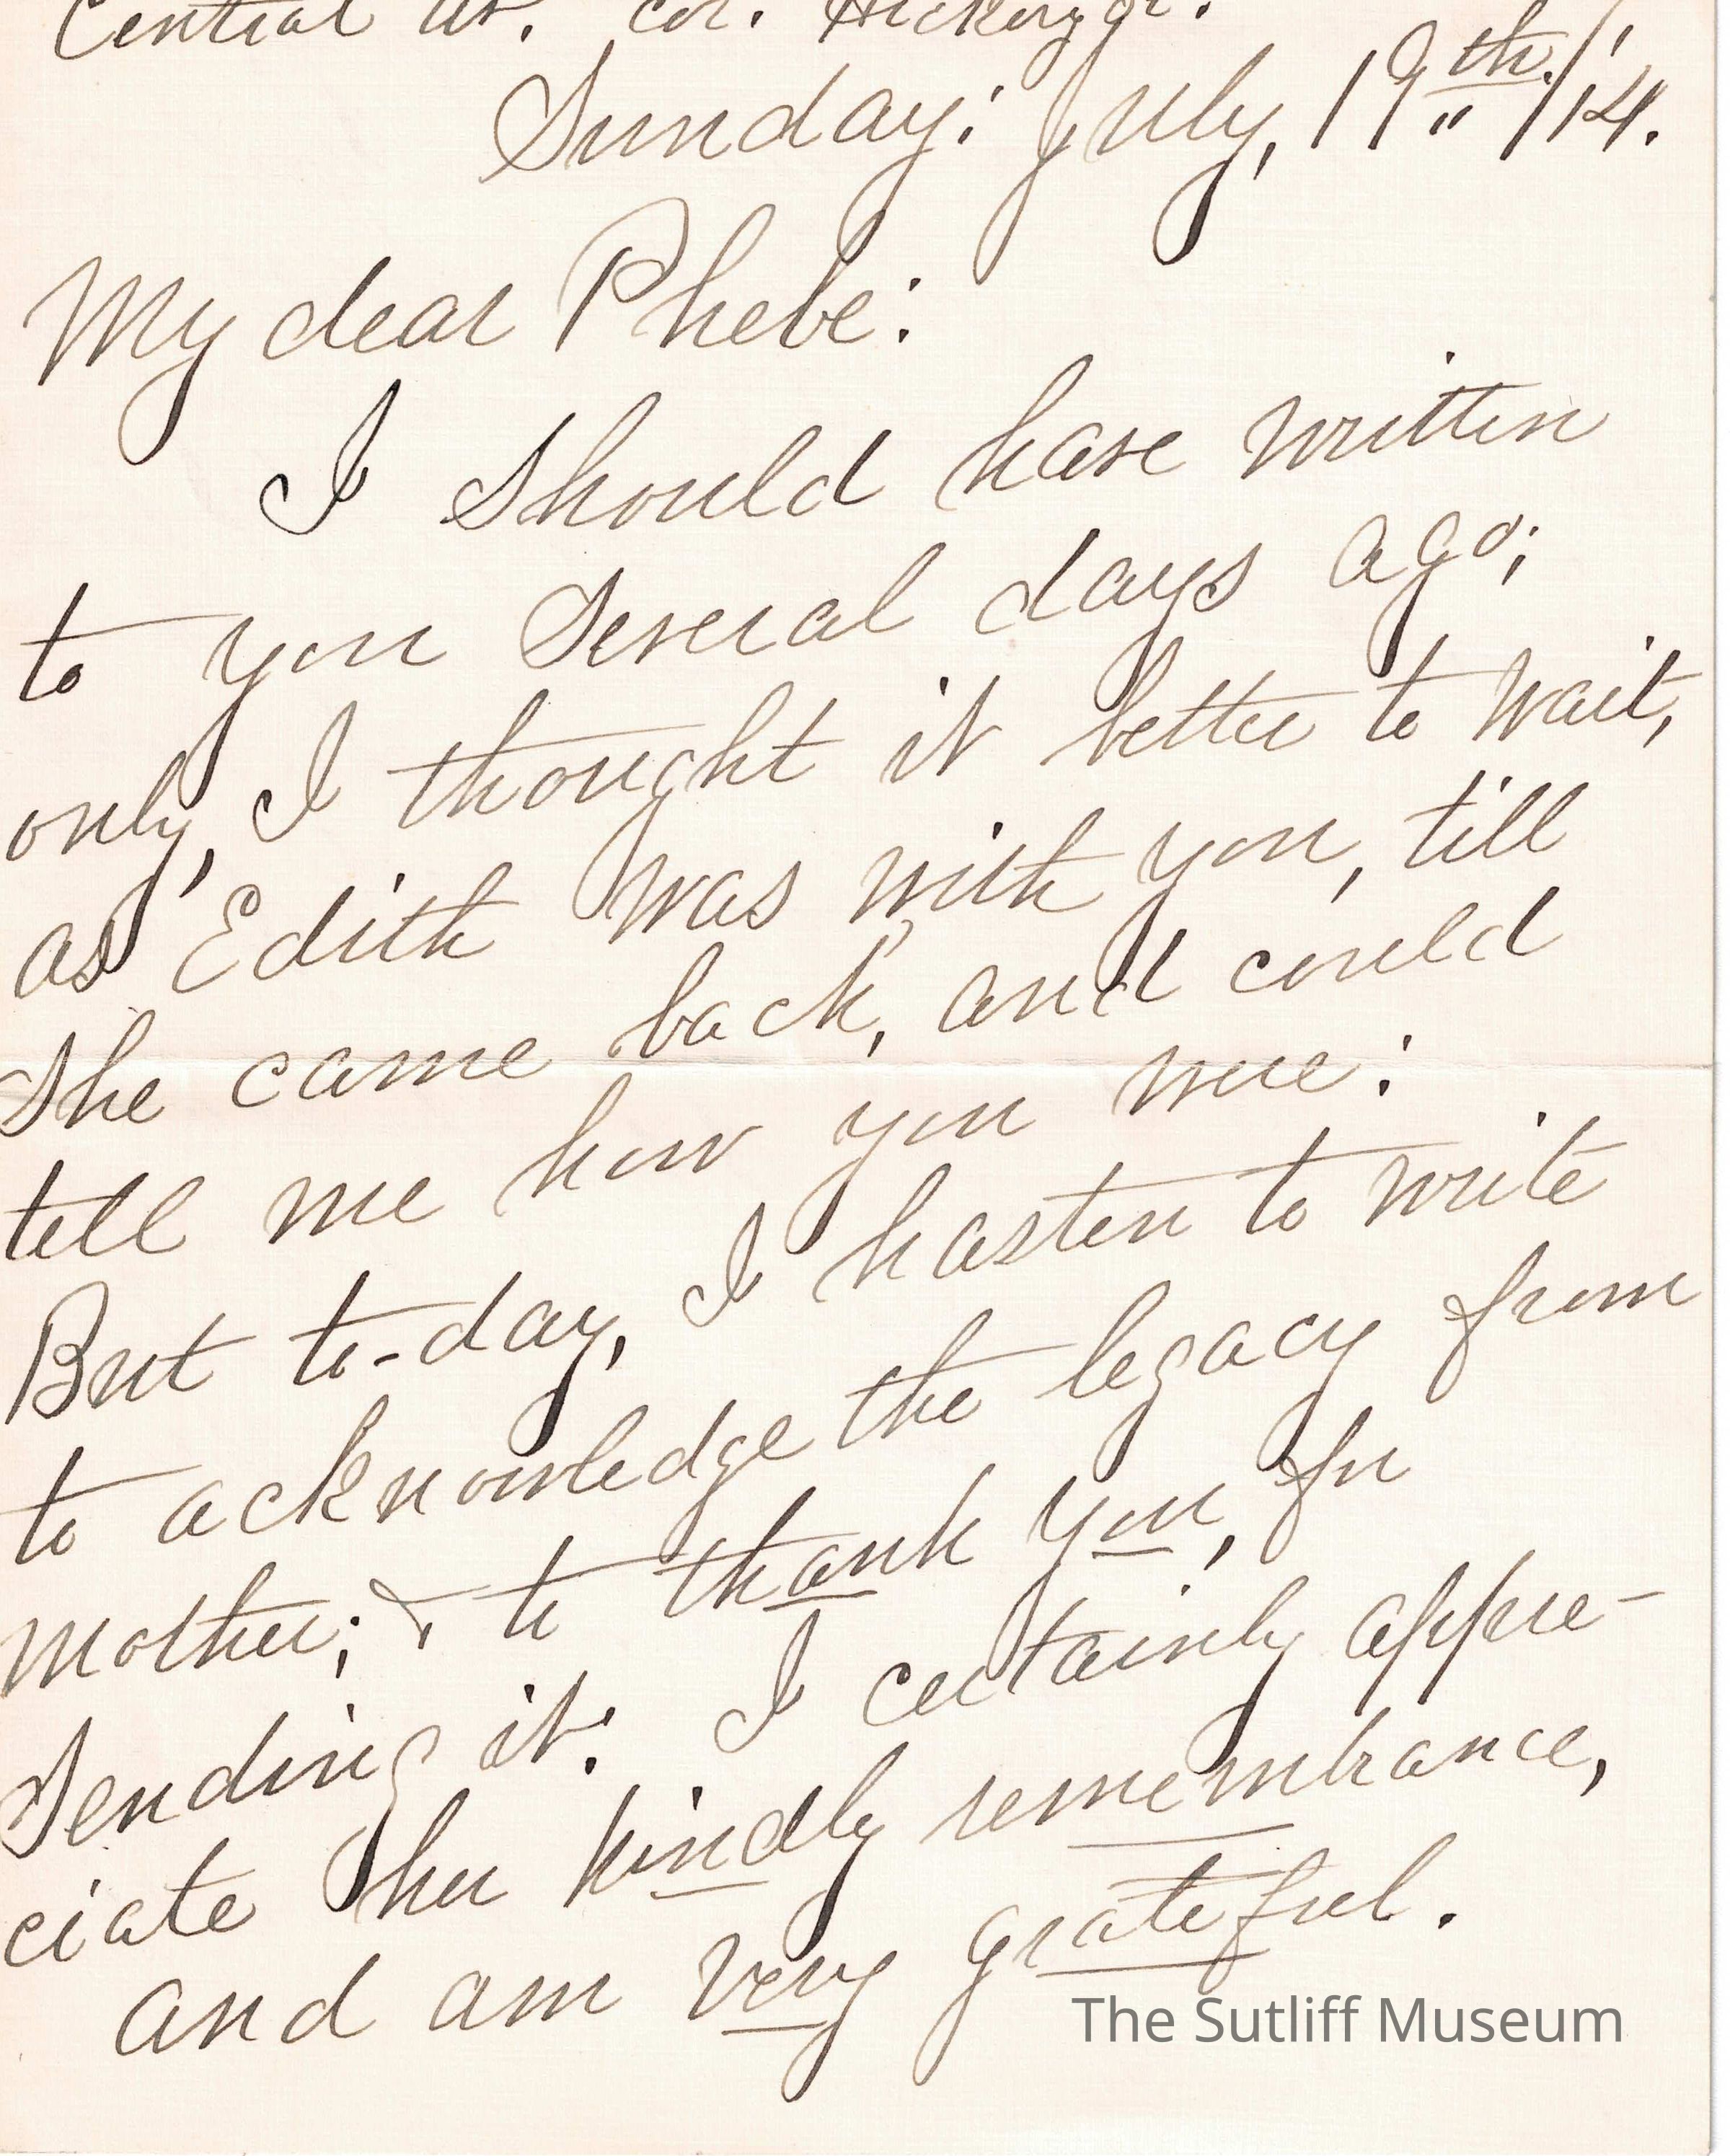 Central Av. cor. Hickory St.
Sunday: July, 19th./'14.
My dear Phebe:
I should have written
to you several days ago;
only, I thought it better to wait,
as Edith was with you, till
she came back, and could
tell me how you were:
But to-day, I hasten to write
to acknowledge the legacy from
mother; & to thank you, for
sending it: I certainly appre-
ciate her kindly remembrance,
and am very grateful.
The Sutliff Museum